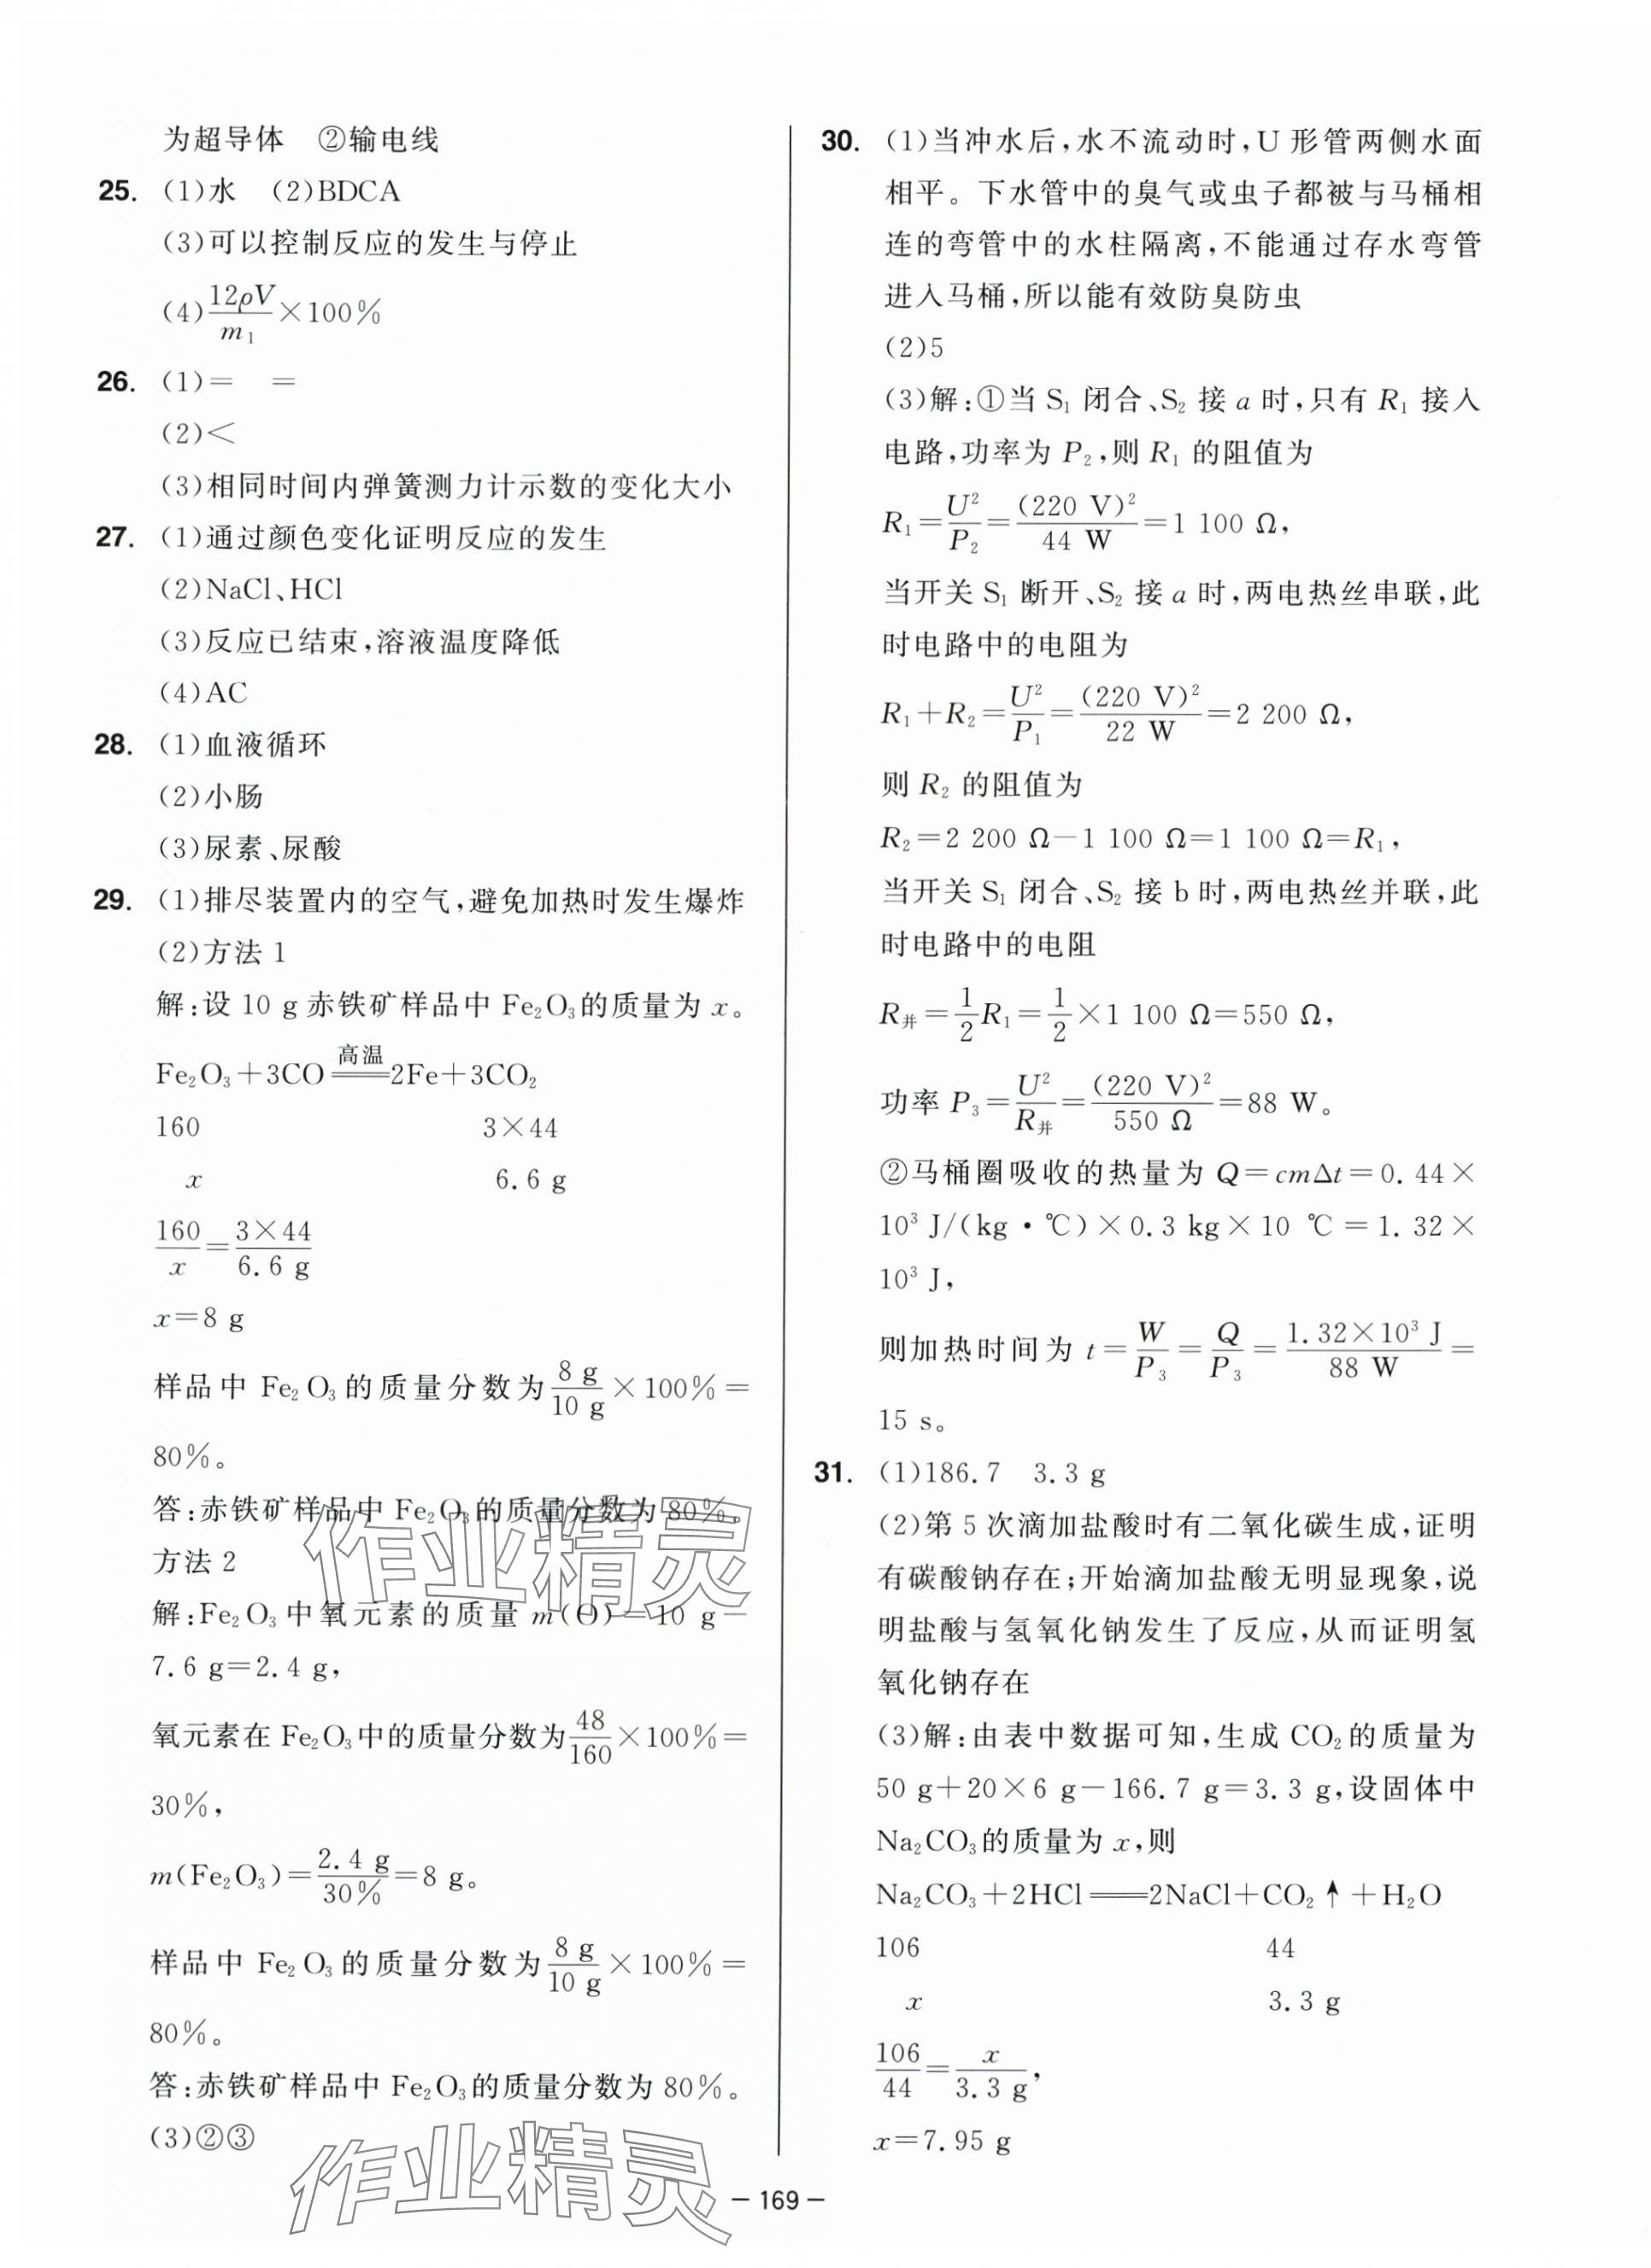 为超导体　②输电线
25. (1)水　(2)BDCA
(3)可以控制反应的发生与停止
(4)12ρV/m₁×100%
26. (1)=　=
(2)<
(3)相同时间内弹簧测力计示数的变化大小
27. (1)通过颜色变化证明反应的发生
(2)NaCl、HCl
(3)反应已结束,溶液温度降低
(4)AC
28. (1)血液循环
(2)小肠
(3)尿素、尿酸
29. (1)排尽装置内的空气,避免加热时发生爆炸
(2)方法 1
解:设 10 g 赤铁矿样品中 Fe₂O₃的质量为 x。
Fe₂O₃+3CO ══高温══ 2Fe+3CO₂
160　3×44
x　6.6 g
160/x=3×44/6.6 g
x=8 g
样品中 Fe₂O₃的质量分数为 8 g/10 g×100%=
80%。
答:赤铁矿样品中 Fe₂O₃的质量分数为 80%。
方法 2
解:Fe₂O₃中氧元素的质量 m(O)=10 g-
7.6 g=2.4 g,
氧元素在 Fe₂O₃中的质量分数为 48/160×100%=
30%,
m(Fe₂O₃)=2.4 g/30%=8 g。
样品中 Fe₂O₃的质量分数为 8 g/10 g×100%=
80%。
答:赤铁矿样品中 Fe₂O₃的质量分数为 80%。
(3)②③
30. (1)当冲水后,水不流动时,U 形管两侧水面
相平。下水管中的臭气或虫子都被与马桶相
连的弯管中的水柱隔离,不能通过存水弯管
进入马桶,所以能有效防臭防虫
(2)5
(3)解:①当 S₁ 闭合、S₂ 接 a 时,只有 R₁ 接入
电路,功率为 P₂,则 R₁ 的阻值为
R₁=U²/P₂=(220 V)²/44 W=1 100 Ω,
当开关 S₁ 断开、S₂ 接 a 时,两电热丝串联,此
时电路中的电阻为
R₁+R₂=U²/P₁=(220 V)²/22 W=2 200 Ω,
则 R₂ 的阻值为
R₂=2 200 Ω-1 100 Ω=1 100 Ω=R₁,
当开关 S₁ 闭合、S₂ 接 b 时,两电热丝并联,此
时电路中的电阻
R并=1/2R₁=1/2×1 100 Ω=550 Ω,
功率 P₃=U²/R并=(220 V)²/550 Ω=88 W。
②马桶圈吸收的热量为 Q=cmΔt=0.44×
10³ J/(kg·℃)×0.3 kg×10 ℃=1.32×
10³ J,
则加热时间为 t=W/P₃=Q/P₃=1.32×10³ J/88 W=
15 s。
31. (1)186.7　3.3 g
(2)第 5 次滴加盐酸时有二氧化碳生成,证明
有碳酸钠存在;开始滴加盐酸无明显现象,说
明盐酸与氢氧化钠发生了反应,从而证明氢
氧化钠存在
(3)解:由表中数据可知,生成 CO₂的质量为
50 g+20×6 g-166.7 g=3.3 g,设固体中
Na₂CO₃的质量为 x,则
Na₂CO₃+2HCl══2NaCl+CO₂↑+H₂O
106　44
x　3.3 g
106/44=x/3.3 g,
x=7.95 g
作业精灵
作业精灵
-169-